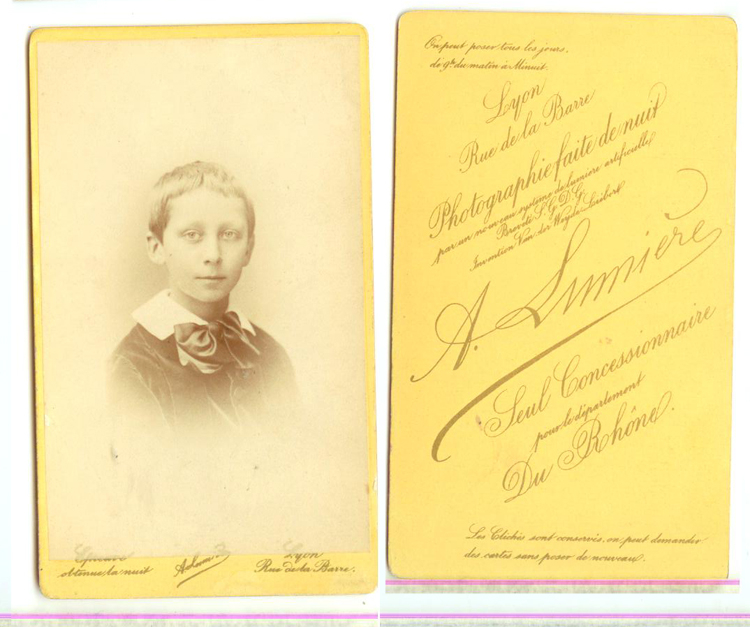 Epreuve
obtenue la nuit
A. Lum
Lyon
Rue de la Barre.
On peut poser tous les jours,
de 9h. du matin à Minuit.
Lyon
Rue de la Barre
Photographie faite de nuit
par un nouveau système de lumière artificielle
Breveté S.G.D.G.
Invention Van der Weyde
A. Lumière
Seul Concessionnaire
pour le département
Du Rhône.
Les Clichés sont conservés, on peut demander
des cartes sans poser de nouveau.